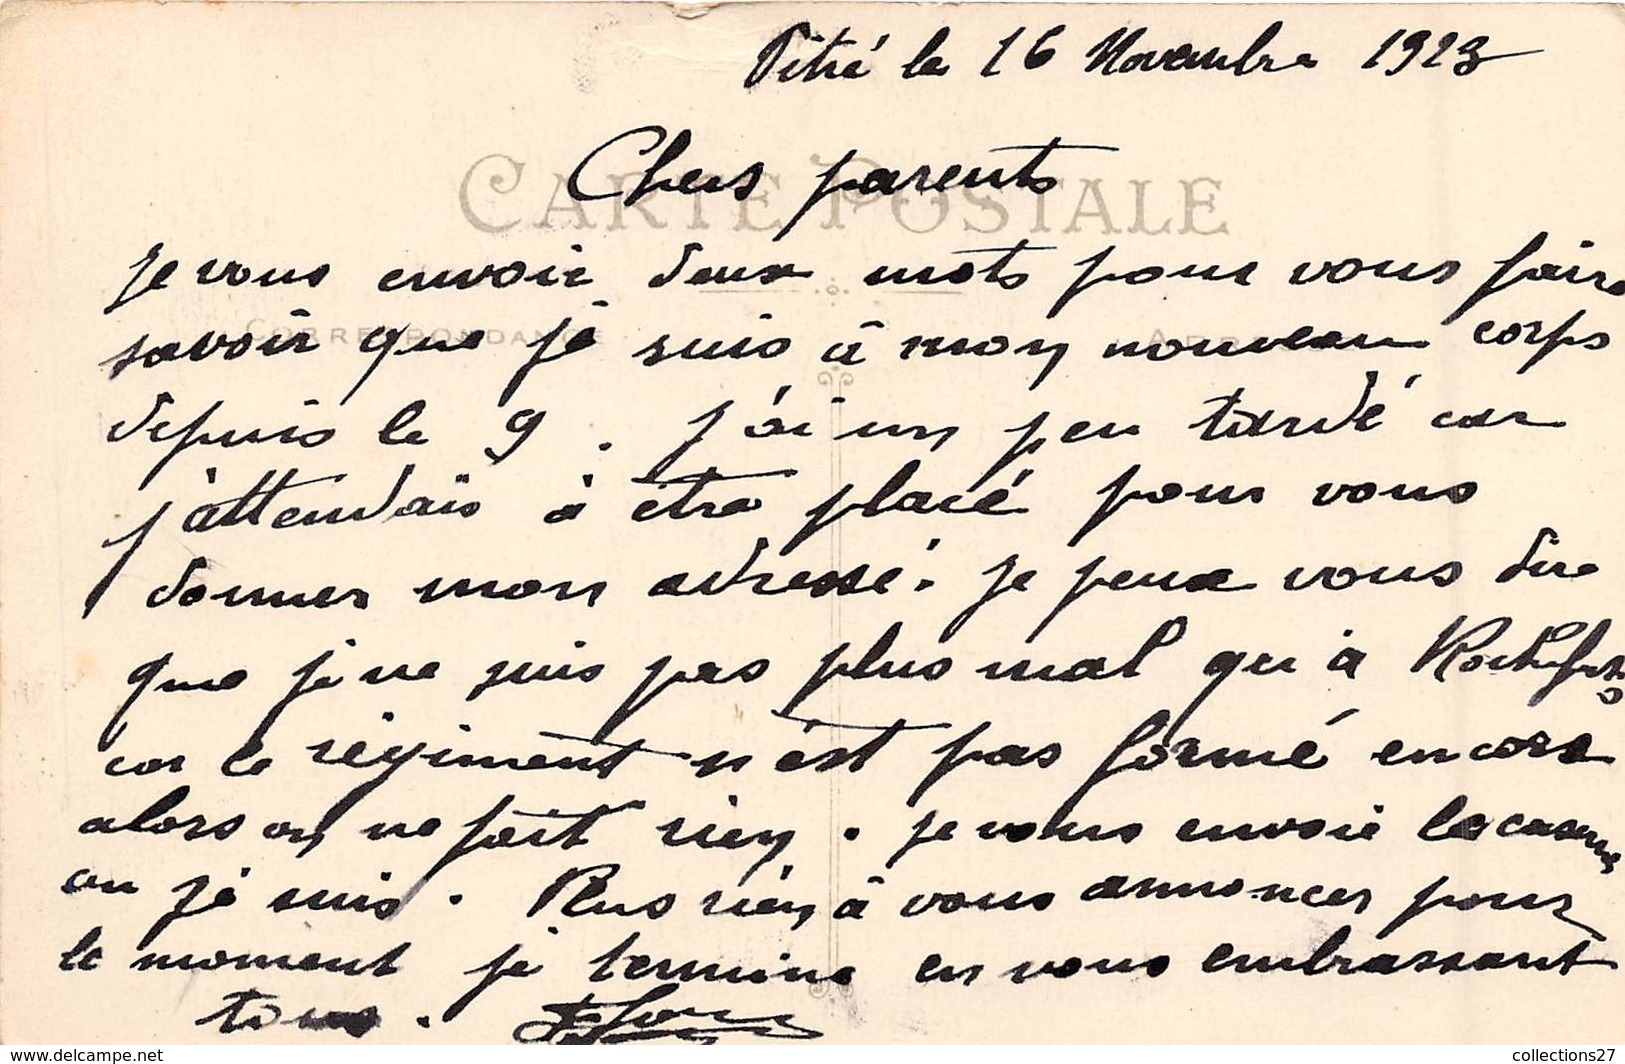 Vitré le 16 Novembre 1923
Chers parents
CARTE POSTALE
Je vous envoie deux mots pour vous faire
CORRESPONDANCE
savoir que je suis à mon nouveau corps
depuis le 9. J'ai un peu tardé car
j'attendais à être placé pour vous
donner mon adresse. Je peux vous dire
que je ne suis pas plus mal qu'à Rochefort
car le régiment n'est pas formé encore
alors on ne fait rien. Je vous envoie la caserne
ou je suis. Plus rien à vous annoncer pour
le moment je termine en vous embrassant
tous.
www.delcampe.net
collections27